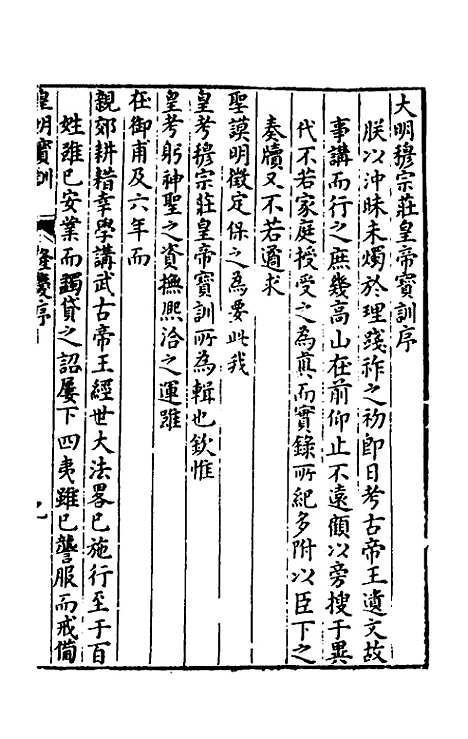 大明穆宗莊皇帝寳訓序
朕以沖昧未燭於理踐祚之初即日考古帝王遺文故
事講而行之庶幾高山在前仰止不遠顧以旁搜于異
代不若家庭授受之為真而實錄所紀多附以臣下之
奏牘又不若遹求
聖謨明徵定保之為要此我
皇考穆宗莊皇帝寳訓所為輯也欽惟
皇考躬神聖之資撫熙洽之運雖
在御甫及六年而
親郊耕耤幸學講武古帝王經世大法畧已施行至于百
姓雖已安業而蠲貸之詔屢下四夷雖已讋服而戒備
皇明寳訓
隆慶序